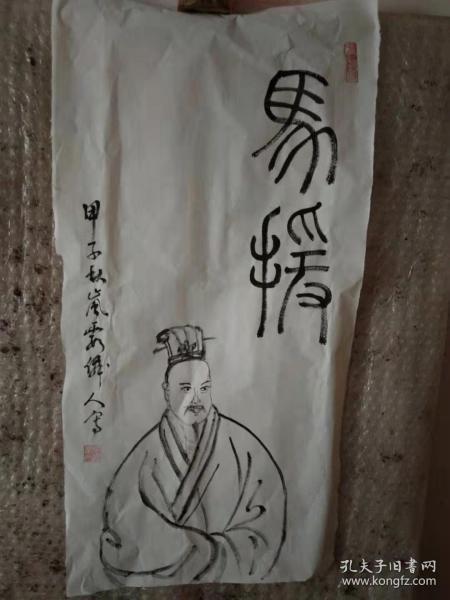 馬援
甲子秋嵐雲缘人写
孔夫子旧书网
www.kongfz.com